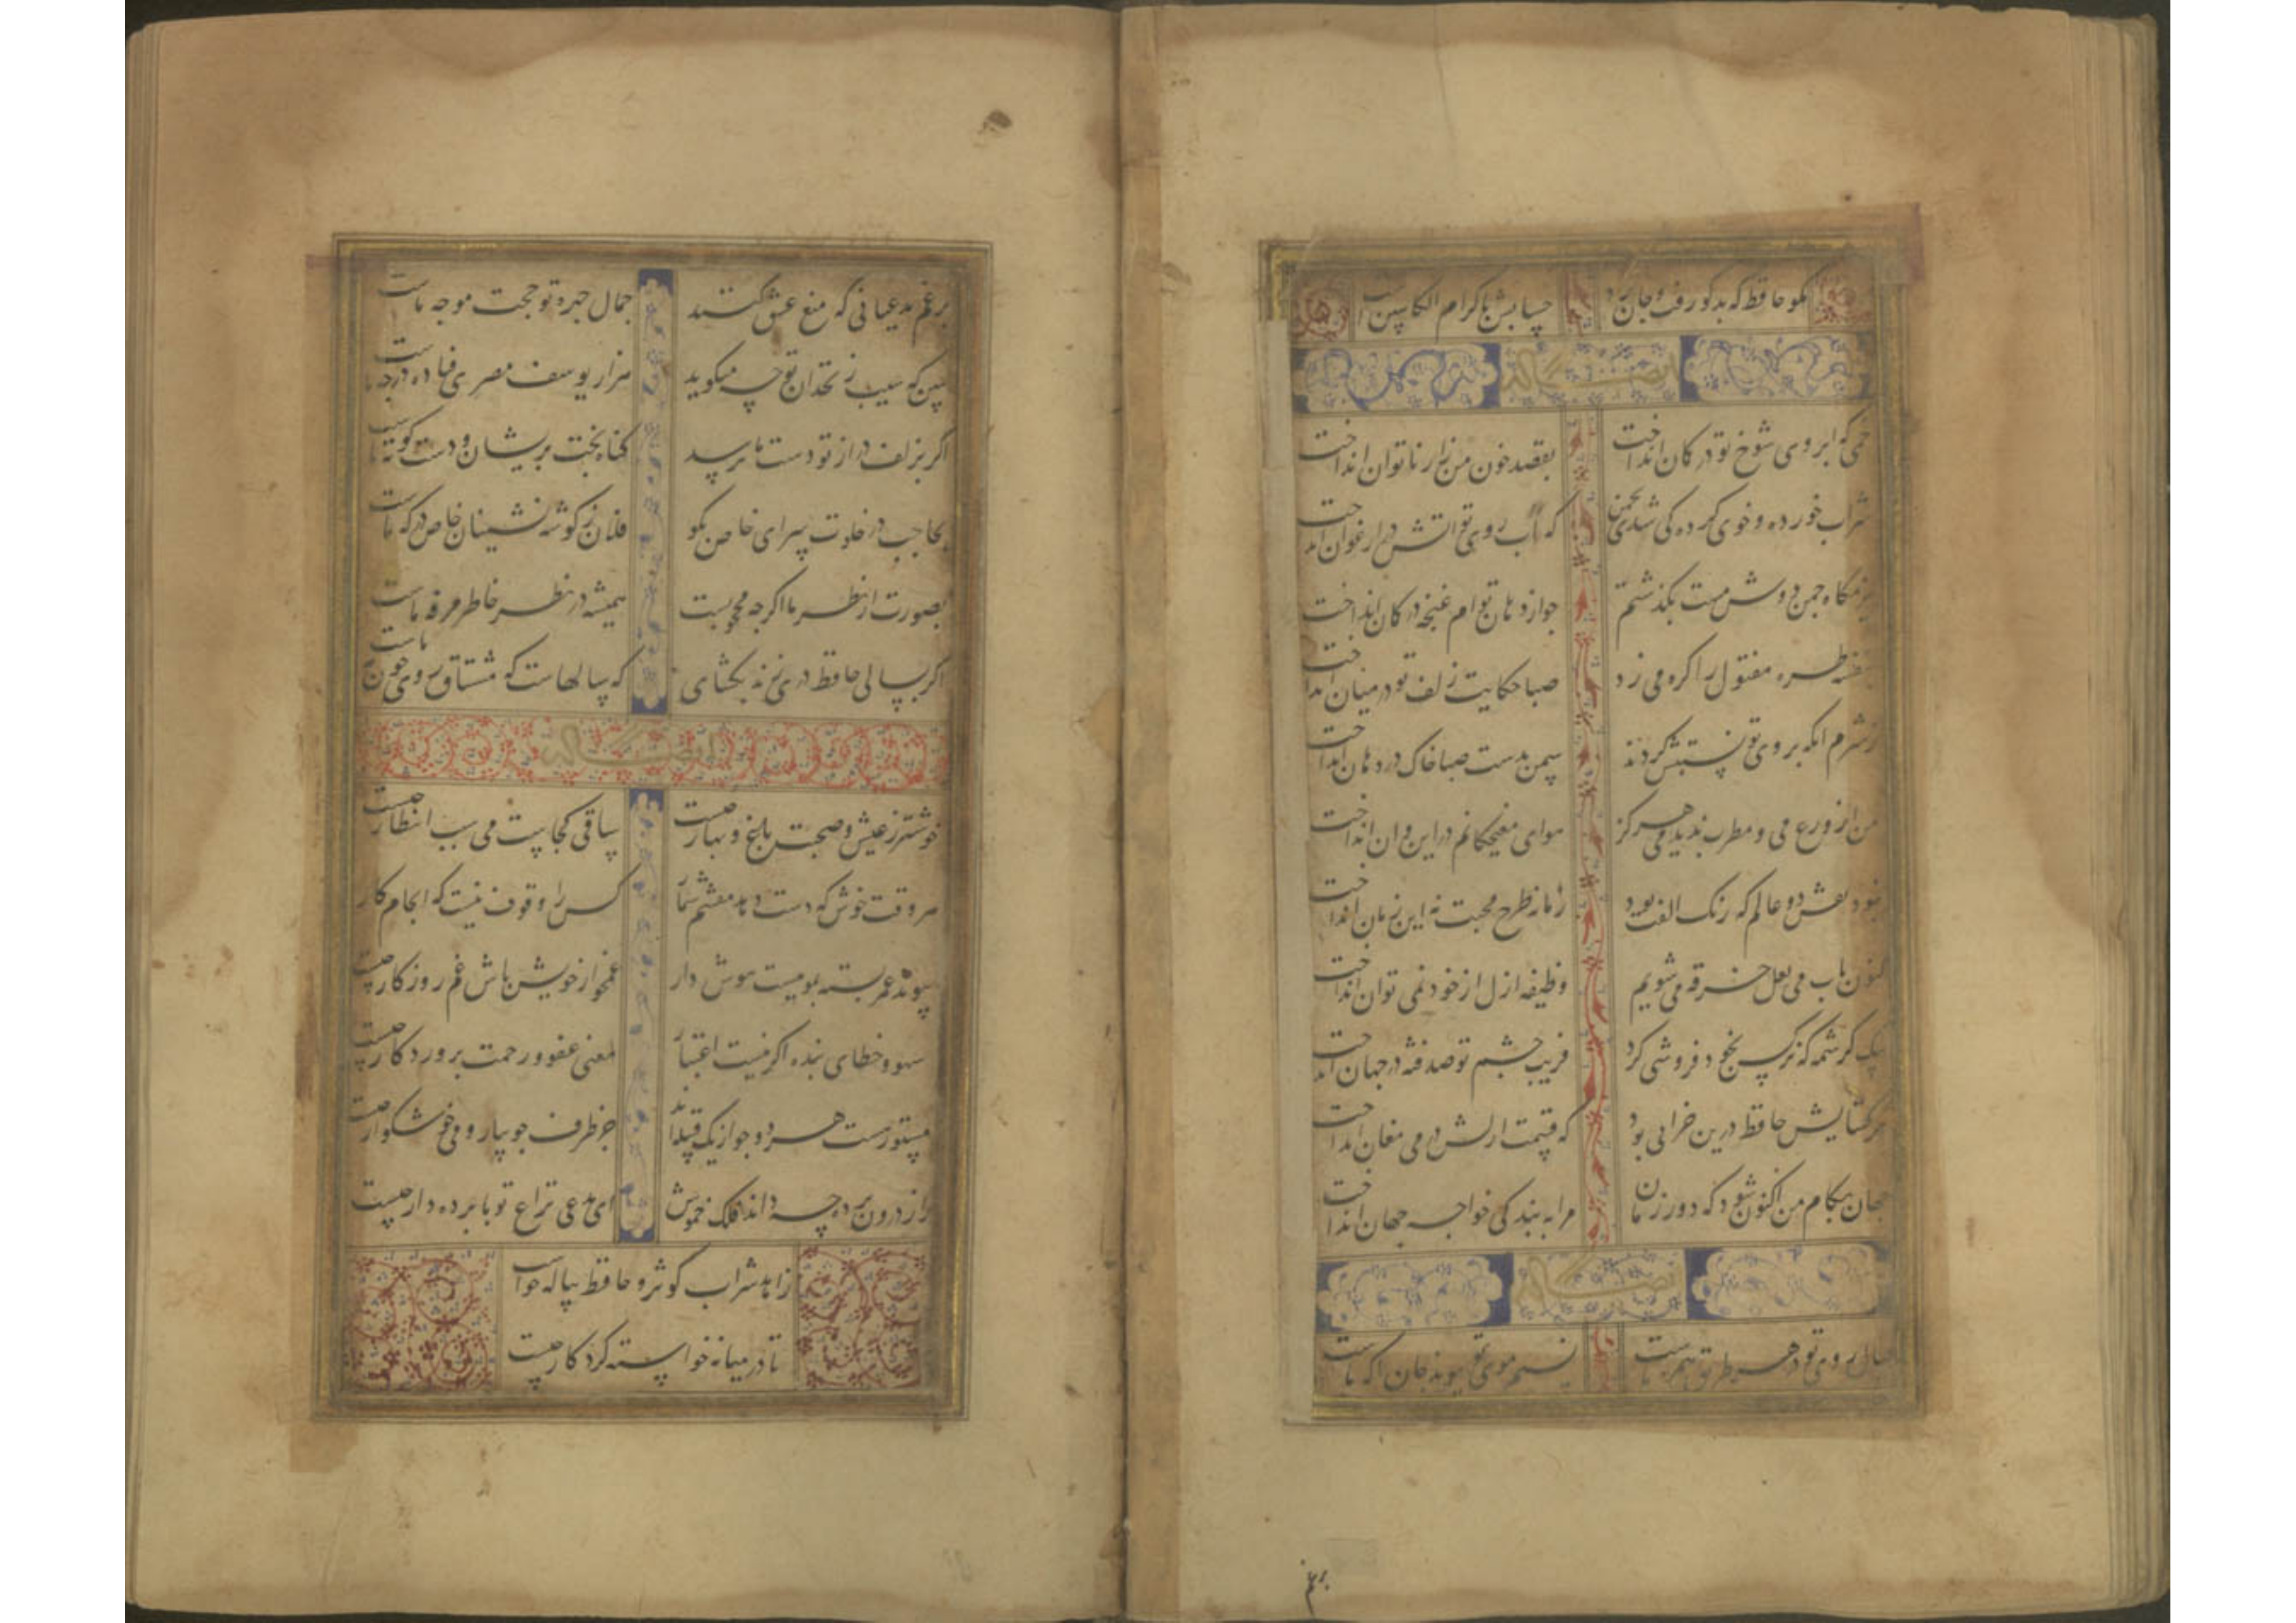 مکو حافظ که بد کو رفت و جان برد
حسابش با کرام الکاتبین است
ایضا له
خمی که ابروی شوخ تو در کمان انداخت
بقصد خون من زار ناتوان انداخت
شراب خورده و خوی کرده کی شدی بچمن
که آب روی تو اتش در ارغوان انداخت
بزمکاه چمن دوش مست بکذشتم
چو از دهان توام غنچه در کمان انداخت
بنفشه طره مفتول را کره می زد
صبا حکایت زلف تو در میان انداخت
ز شرم انکه بروی تو نسبتش کردند
سمن بدست صبا خاک در دهان انداخت
من از ورع می و مطرب ندیدمی هرکز
هوای مغبچکانم در این و ان انداخت
نبود نقش دو عالم که رنک الفت بود
زمانه طرح محبت نه این زمان انداخت
کنون باب می لعل خرقه می شویم
وظیفه ازل از خود نمی توان انداخت
بیک کرشمه که نرکس بخود فروشی کرد
فریب چشم تو صد فتنه در جهان انداخت
مکر کشایش حافظ درین خرابی بود
که قسمت ازلش در می مغان انداخت
جهان بکام من اکنون شود که دور زمان
مرا به بندکی خواجه جهان انداخت
ایضا له
خیال روی تو در هر طریق همره ماست
نسیم موی تو پیوند جان اکه ماست
برغم
برغم مدعیانی که منع عشق کنند
جمال چهره تو حجت موجه ماست
ببین که سیب زنخدان تو چه میکوید
هزار یوسف مصری فتاده در چه ماست
اکر بزلف دراز تو دست ما نرسد
کناه بخت پریشان و دست کوته ماست
بحاجب در خلوت سرای خاص بکو
فلان ز کوشه نشینان خاص درکه ماست
بصورت از نظر ما اکرچه محجوبست
همیشه در نظر خاطر مرفه ماست
اکر بسالی حافظ دری زند بکشای
که سالهاست که مشتاق روی چون مه ماست
ایضا له
خوشتر ز عیش و صحبت باغ و بهار چیست
ساقی کجاست می سبب انتظار چیست
هر وقت خوش که دست دهد مغتنم شمار
کس را وقوف نیست که انجام کار
پیوند عمر بسته بمویست هوش دار
غمخوار خویش باش غم روزکار چیست
سهو و خطای بنده اکر نیست اعتبار
معنی عفو و رحمت پروردکار چیست
مستور و مست هر دو چو از یک قبیله اند
جز طرف جویبار و می خوشکوار چیست
راز درون پرده چه داند فلک خموش
ای مدعی نزاع تو با پرده دار چیست
زاهد شراب کوثر و حافظ پیاله خواست
تا در میانه خواسته کردکار چیست